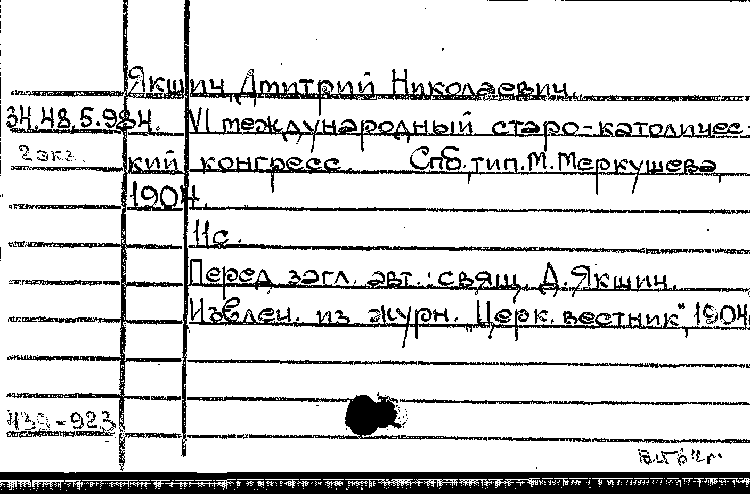 Якшич, Дмитрий Николаевич.
34.48.5.984. VI международный старо-католичес-
2 экз. кий конгресс. Спб, тип. М. Меркушева,
1904.
11с.
Перед загл. авт.: свящ. Д. Якшич.
Извлеч. из журн. „Церк. вестник", 1904